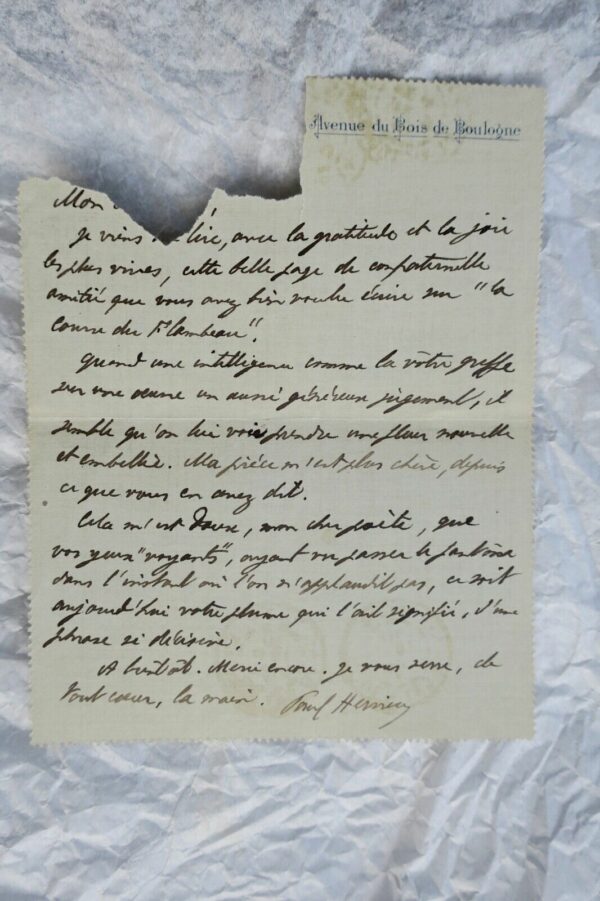 Avenue du Bois de Boulogne
Mon
Je viens lire, avec la gratitude et la joie
les plus vives, cette belle page de confraternelle
amitié que vous avez bien voulu écrire sur "la
Course du Flambeau".
Quand une intelligence comme la vôtre greffe
sur une œuvre un aussi généreux jugement, il
semble qu'on lui voie prendre une fleur nouvelle
et embellie. Ma pièce m'est plus chère, depuis
ce que vous en avez dit.
Cela m'est doux, mon cher poète, que
vos yeux "voyants", ayant vu passer le fantôme
dans l'instant où l'on n'applaudit pas, ce soit
aujourd'hui votre plume qui l'ait signifié, d'une
phrase si décisive.
A bientôt. Merci encore. Je vous serre, de
tout cœur, la main. Paul Hervieu